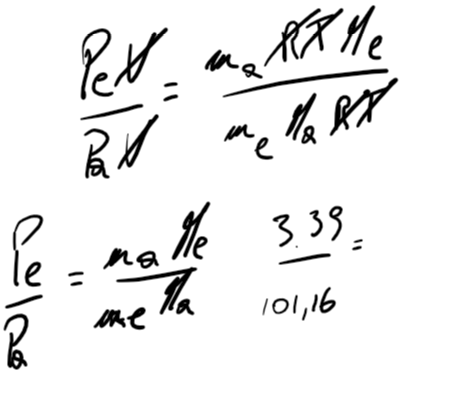 PeV / PaV = ma RT Me / me Ma RT
Pe / Pa = ma Me / me Ma 3.39 / 101,16 =